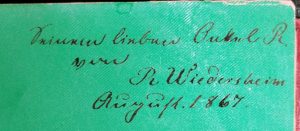 Seinem lieben Onkel R.
von
R. Wiedersheim
August. 1867